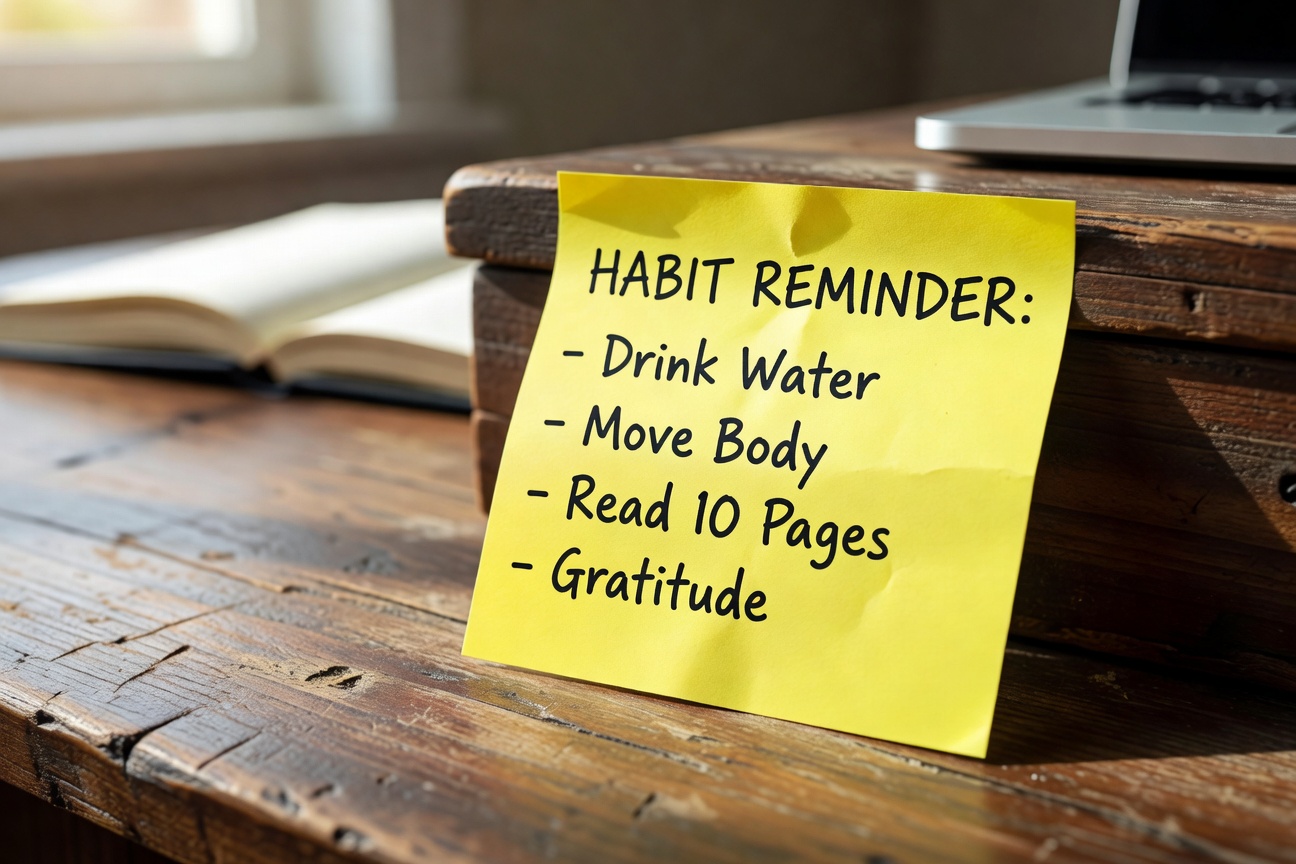 HABIT REMINDER:
- Drink Water
- Move Body
- Read 10 Pages
- Gratitude